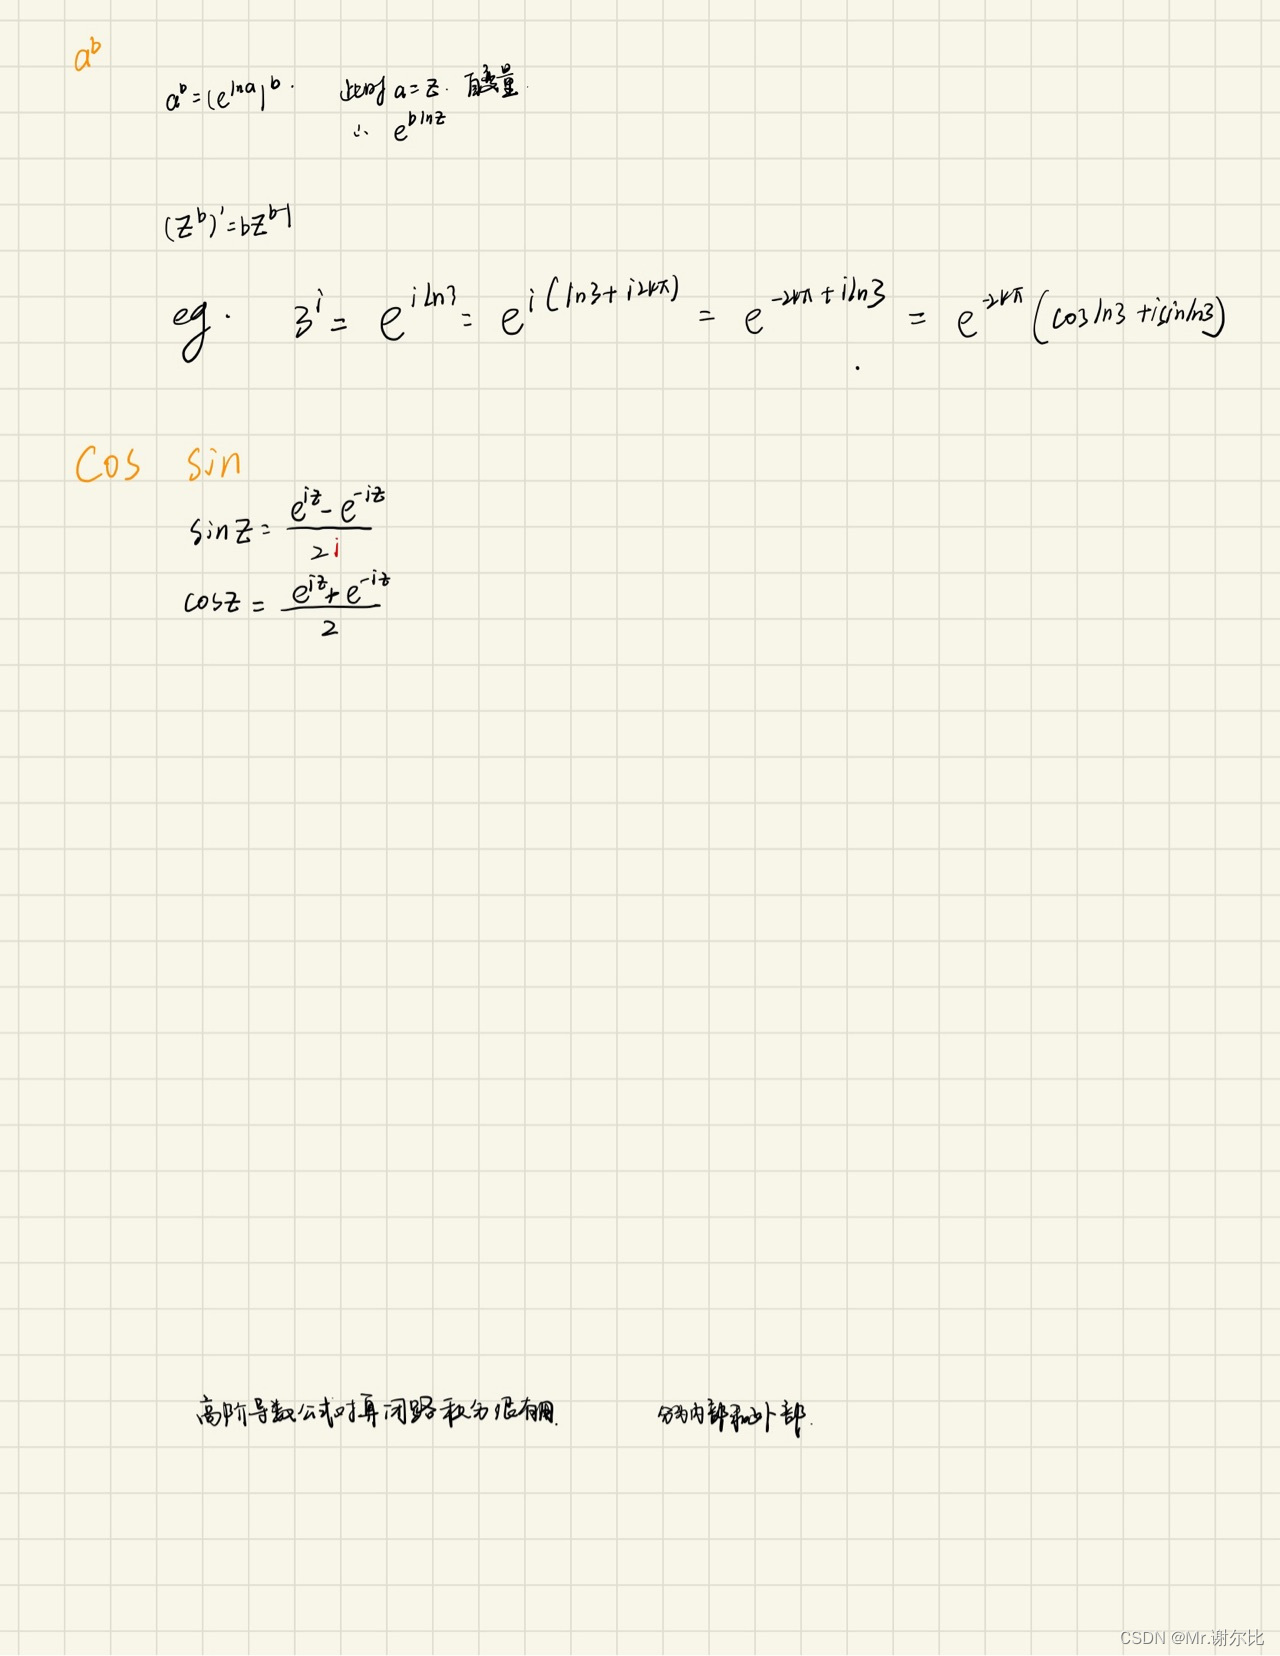 a^b
a^b = (e^{lna})^b. 此时 a = z. 自变量.
∴ e^{blnz}
(z^b)' = bz^{b-1}
eg. 3^i = e^{iLn3} = e^{i(ln3+i2kπ)} = e^{-2kπ+iln3} = e^{-2kπ}(cosln3+isinln3)
cos sin
sinz = \frac{e^{iz}-e^{-iz}}{2i}
cosz = \frac{e^{iz}+e^{-iz}}{2}
高阶导数公式对算闭路积分很有用. 分为内部和外部.
CSDN @Mr.谢尔比